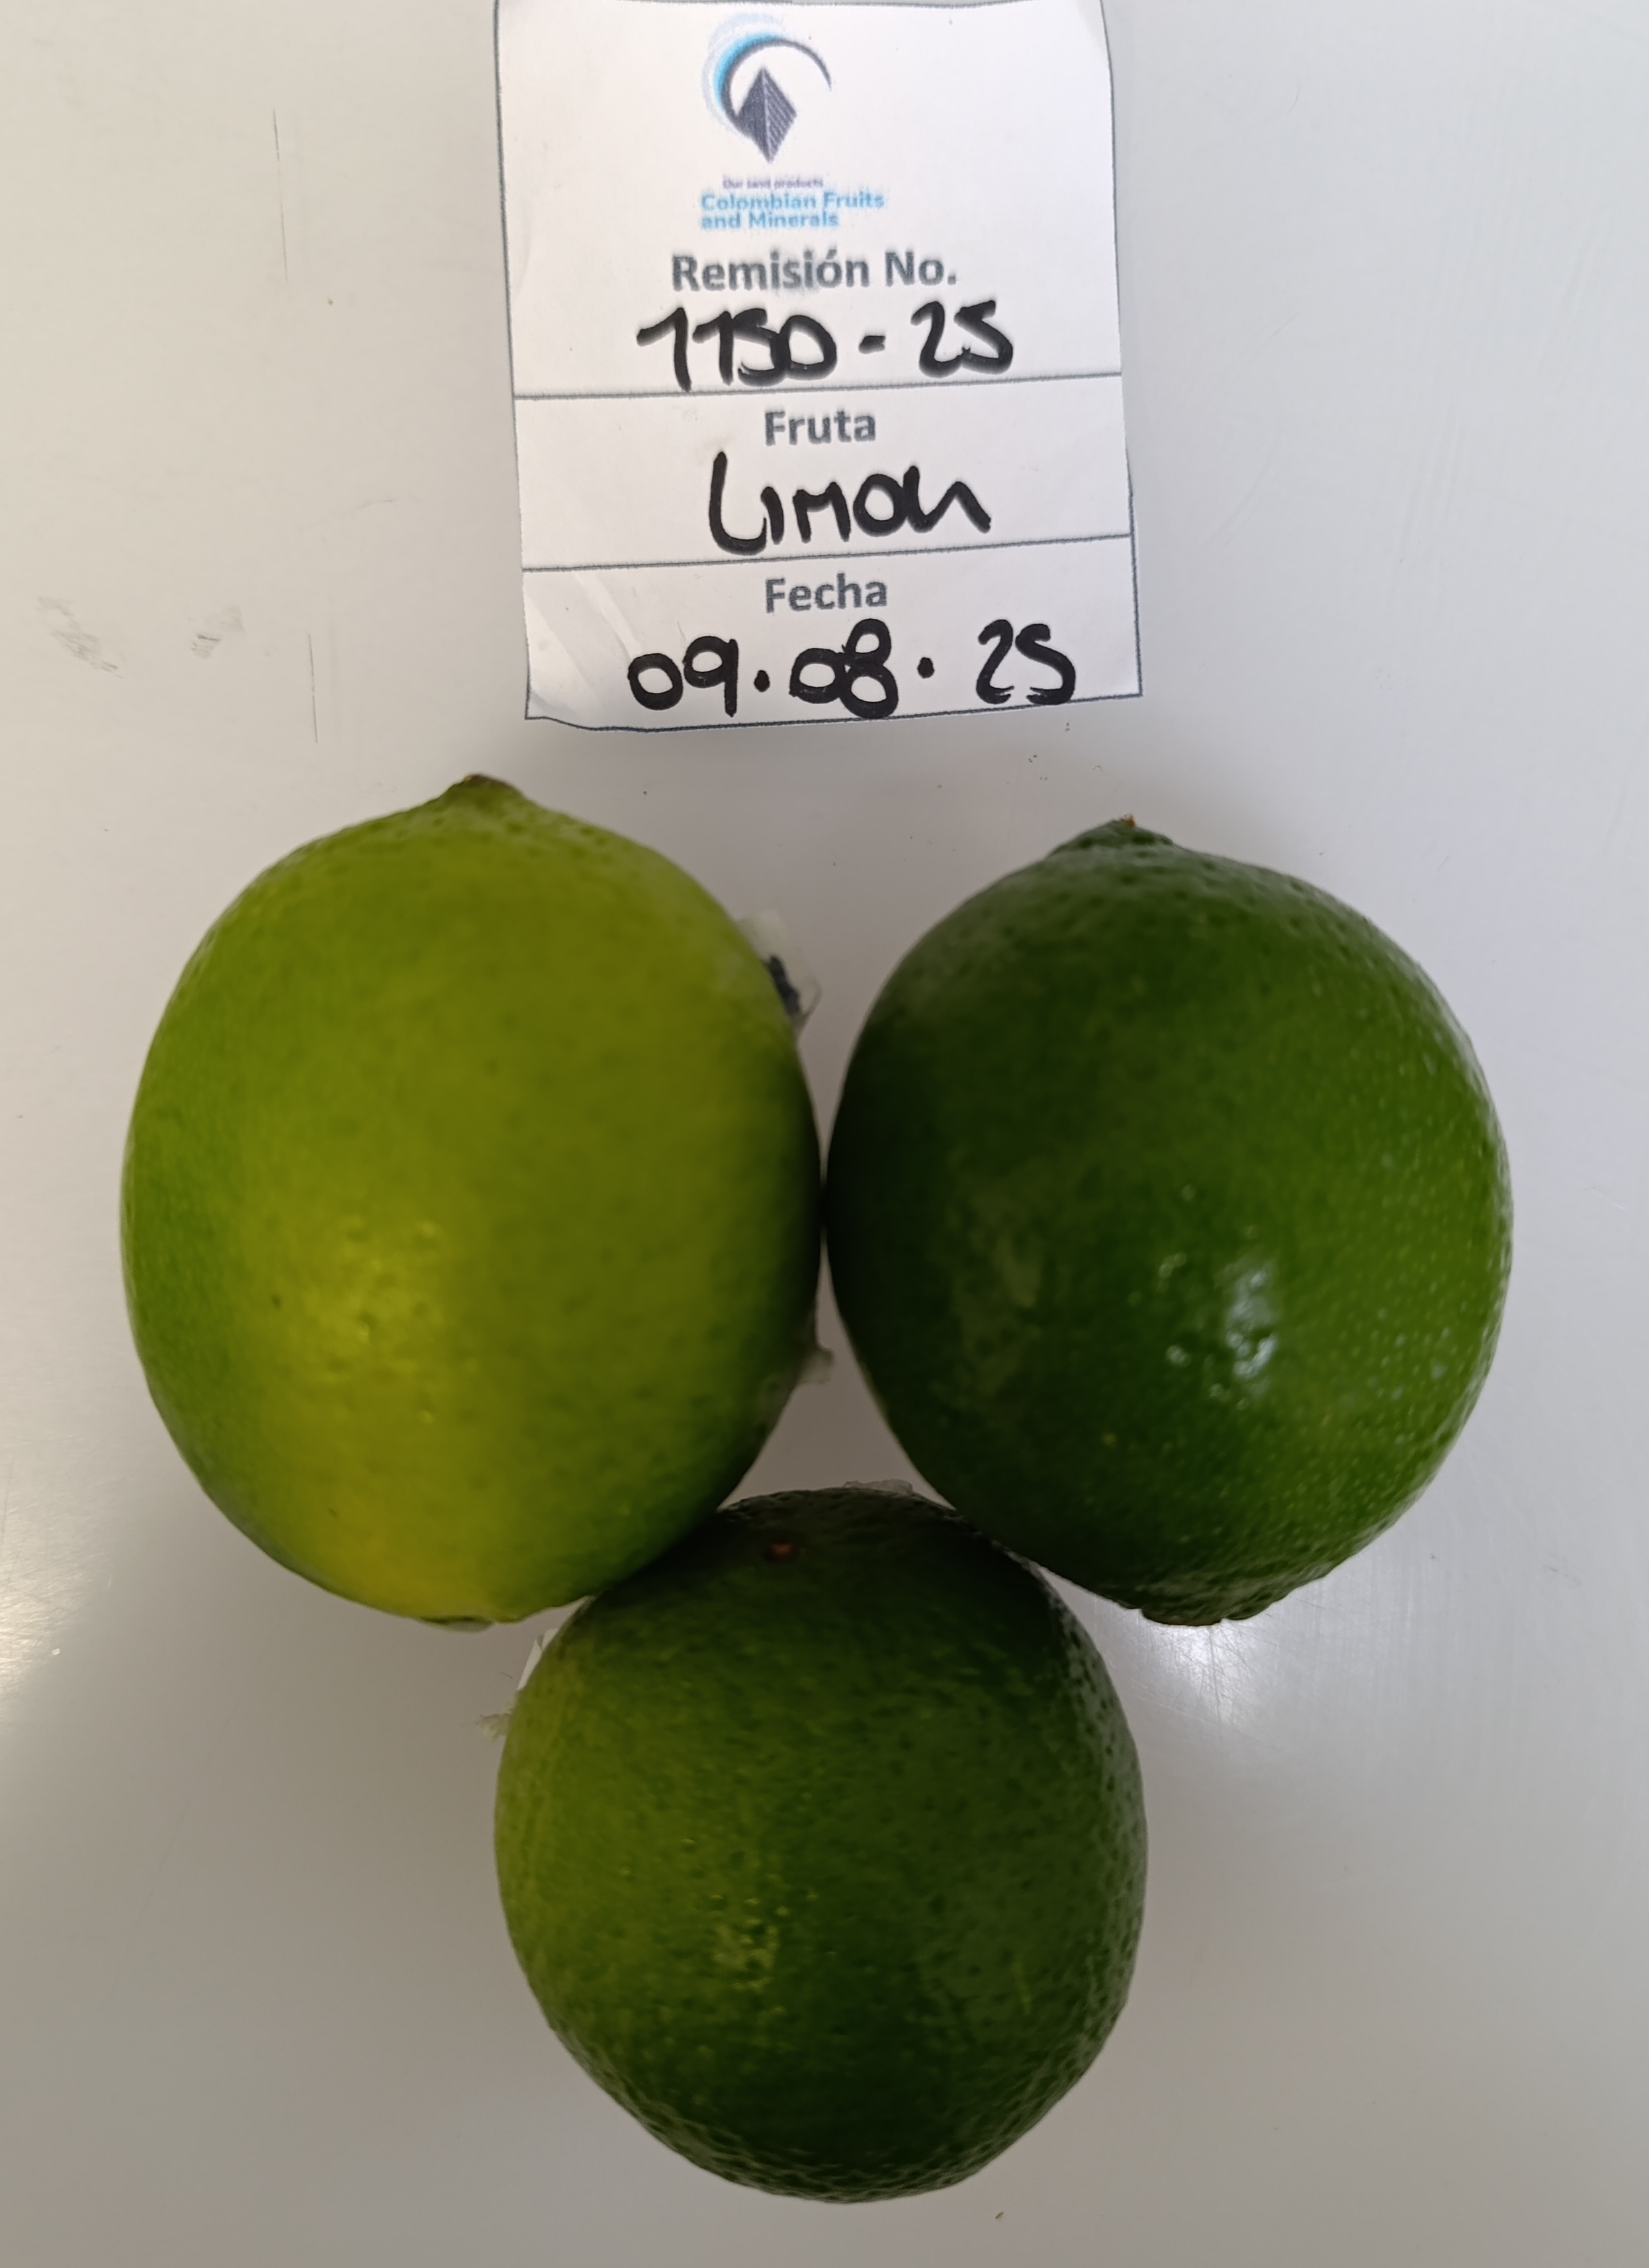 Our land products
Colombian Fruits
and Minerals
Remisión No.
1150-25
Fruta
Limon
Fecha
09.08.25